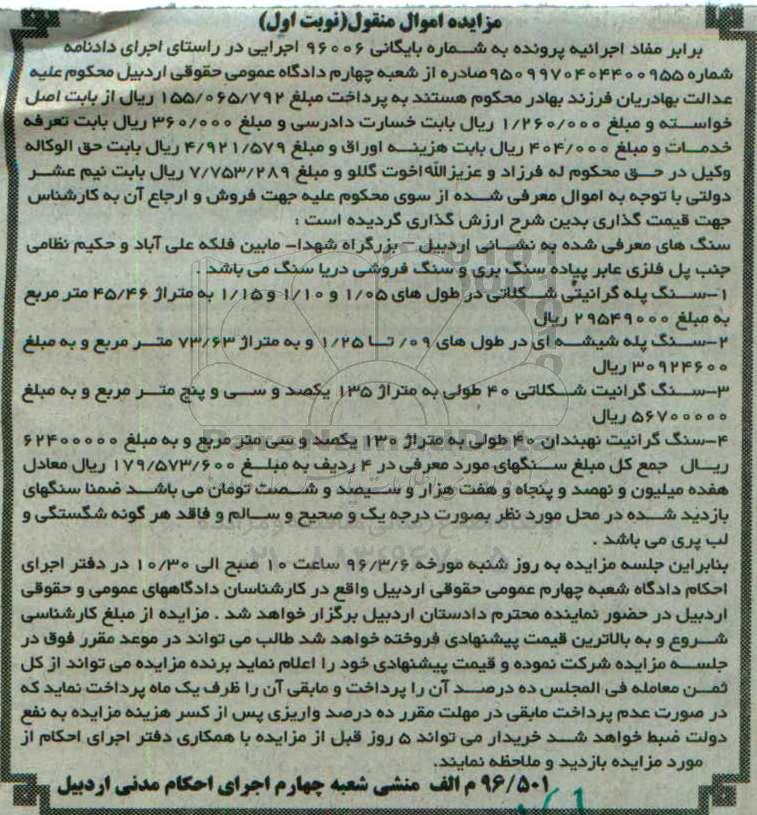 مزایده اموال منقول(نوبت اول)
برابر مفاد اجرائیه پرونده به شماره بایگانی ۹۶۰۰۶ اجرایی در راستای اجرای دادنامه
شماره ۹۵۰۹۹۷۰۴۰۲۴۰۰۹۵۵صادره از شعبه چهارم دادگاه عمومی حقوقی اردبیل محکوم علیه
عدالت بهادریان فرزند بهادر محکوم هستند به پرداخت مبلغ ۱۵۵/۰۶۵/۷۹۲ ریال از بابت اصل
خواسته و مبلغ ۱/۲۶۰/۰۰۰ ریال بابت خسارت دادرسی و مبلغ ۳۶۰/۰۰۰ ریال بابت تعرفه
خدمات و مبلغ ۴۰۴/۰۰۰ ریال بابت هزینه اوراق و مبلغ ۴/۹۲۱/۵۷۹ ریال بابت حق الوکاله
وکیل در حق محکوم له فرزاد و عزیزالله اخوت گللو و مبلغ ۷/۷۵۳/۲۸۹ ریال بابت نیم عشر
دولتی با توجه به اموال معرفی شده از سوی محکوم علیه جهت فروش و ارجاع آن به کارشناس
جهت قیمت گذاری بدین شرح ارزش گذاری گردیده است :
سنگ های معرفی شده به نشانی اردبیل – بزرگراه شهدا- مابین فلکه علی آباد و حکیم نظامی
جنب پل فلزی عابر پیاده سنگ بری و سنگ فروشی دریا سنگ می باشد .
۱-سنگ پله گرانیتی شکلاتی در طول های ۱/۰۵ و ۱/۱۰ و ۱/۱۵ به متراژ ۴۵/۴۶ متر مربع
به مبلغ ۲۹۵۴۹۰۰۰ ریال
۲-سنگ پله شیشه ای در طول های ۰۹/ تا ۱/۲۵ و به متراژ ۷۳/۶۳ متر مربع و به مبلغ
۳۰۹۲۴۶۰۰ ریال
۳-سنگ گرانیت شکلاتی ۴۰ طولی به متراژ ۱۳۵ یکصد و سی و پنج متر مربع و به مبلغ
۵۶۷۰۰۰۰۰ ریال
۴-سنگ گرانیت نهبندان ۴۰ طولی به متراژ ۱۳۰ یکصد و سی متر مربع و به مبلغ ۶۲۴۰۰۰۰۰
ریال جمع کل مبلغ سنگهای مورد معرفی در ۴ ردیف به مبلغ ۱۷۹/۵۷۳/۶۰۰ ریال معادل
هفده میلیون و نهصد و پنجاه و هفت هزار و سیصد و شصت تومان می باشد ضمنا سنگهای
بازدید شده در محل مورد نظر بصورت درجه یک و صحیح و سالم و فاقد هر گونه شگستگی و
لب پری می باشد .
بنابراین جلسه مزایده به روز شنبه مورخه ۹۶/۳/۶ ساعت ۱۰ صبح الی ۱۰/۳۰ در دفتر اجرای
احکام دادگاه شعبه چهارم عمومی حقوقی اردبیل واقع در کارشناسان دادگاههای عمومی و حقوقی
اردبیل در حضور نماینده محترم دادستان اردبیل برگزار خواهد شد . مزایده از مبلغ کارشناسی
شروع و به بالاترین قیمت پیشنهادی فروخته خواهد شد طالب می تواند در موعد مقرر فوق در
جلسه مزایده شرکت نموده و قیمت پیشنهادی خود را اعلام نماید برنده مزایده می تواند از کل
ثمن معامله فی المجلس ده درصد آن را پرداخت و مابقی آن را ظرف یک ماه پرداخت نماید که
در صورت عدم پرداخت مابقی در مهلت مقرر ده درصد واریزی پس از کسر هزینه مزایده به نفع
دولت ضبط خواهد شد خریدار می تواند ۵ روز قبل از مزایده با همکاری دفتر اجرای احکام از
مورد مزایده بازدید و ملاحظه نمایند.
۹۶/۵۰۱ م الف منشی شعبه چهارم اجرای احکام مدنی اردبیل